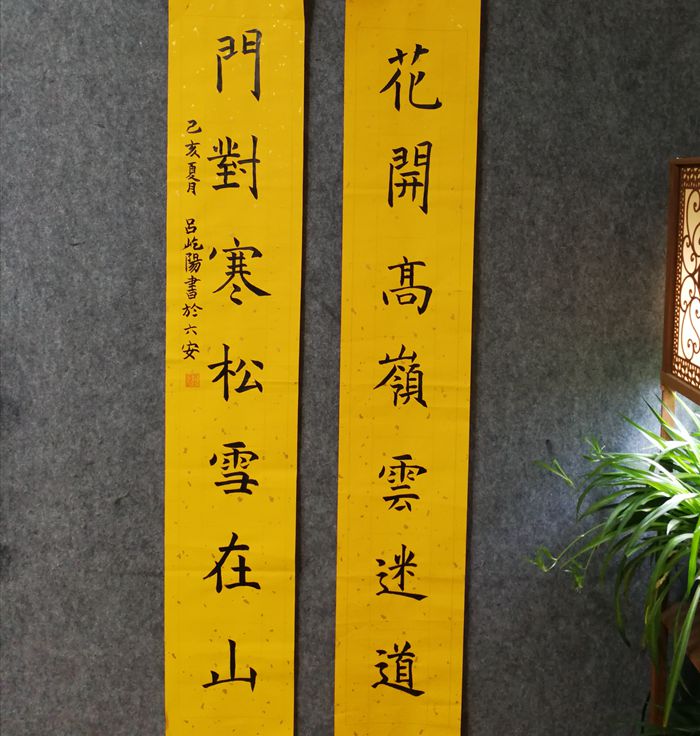 花開高嶺雲迷道
門對寒松雪在山
己亥夏月 呂屹陽書於六安